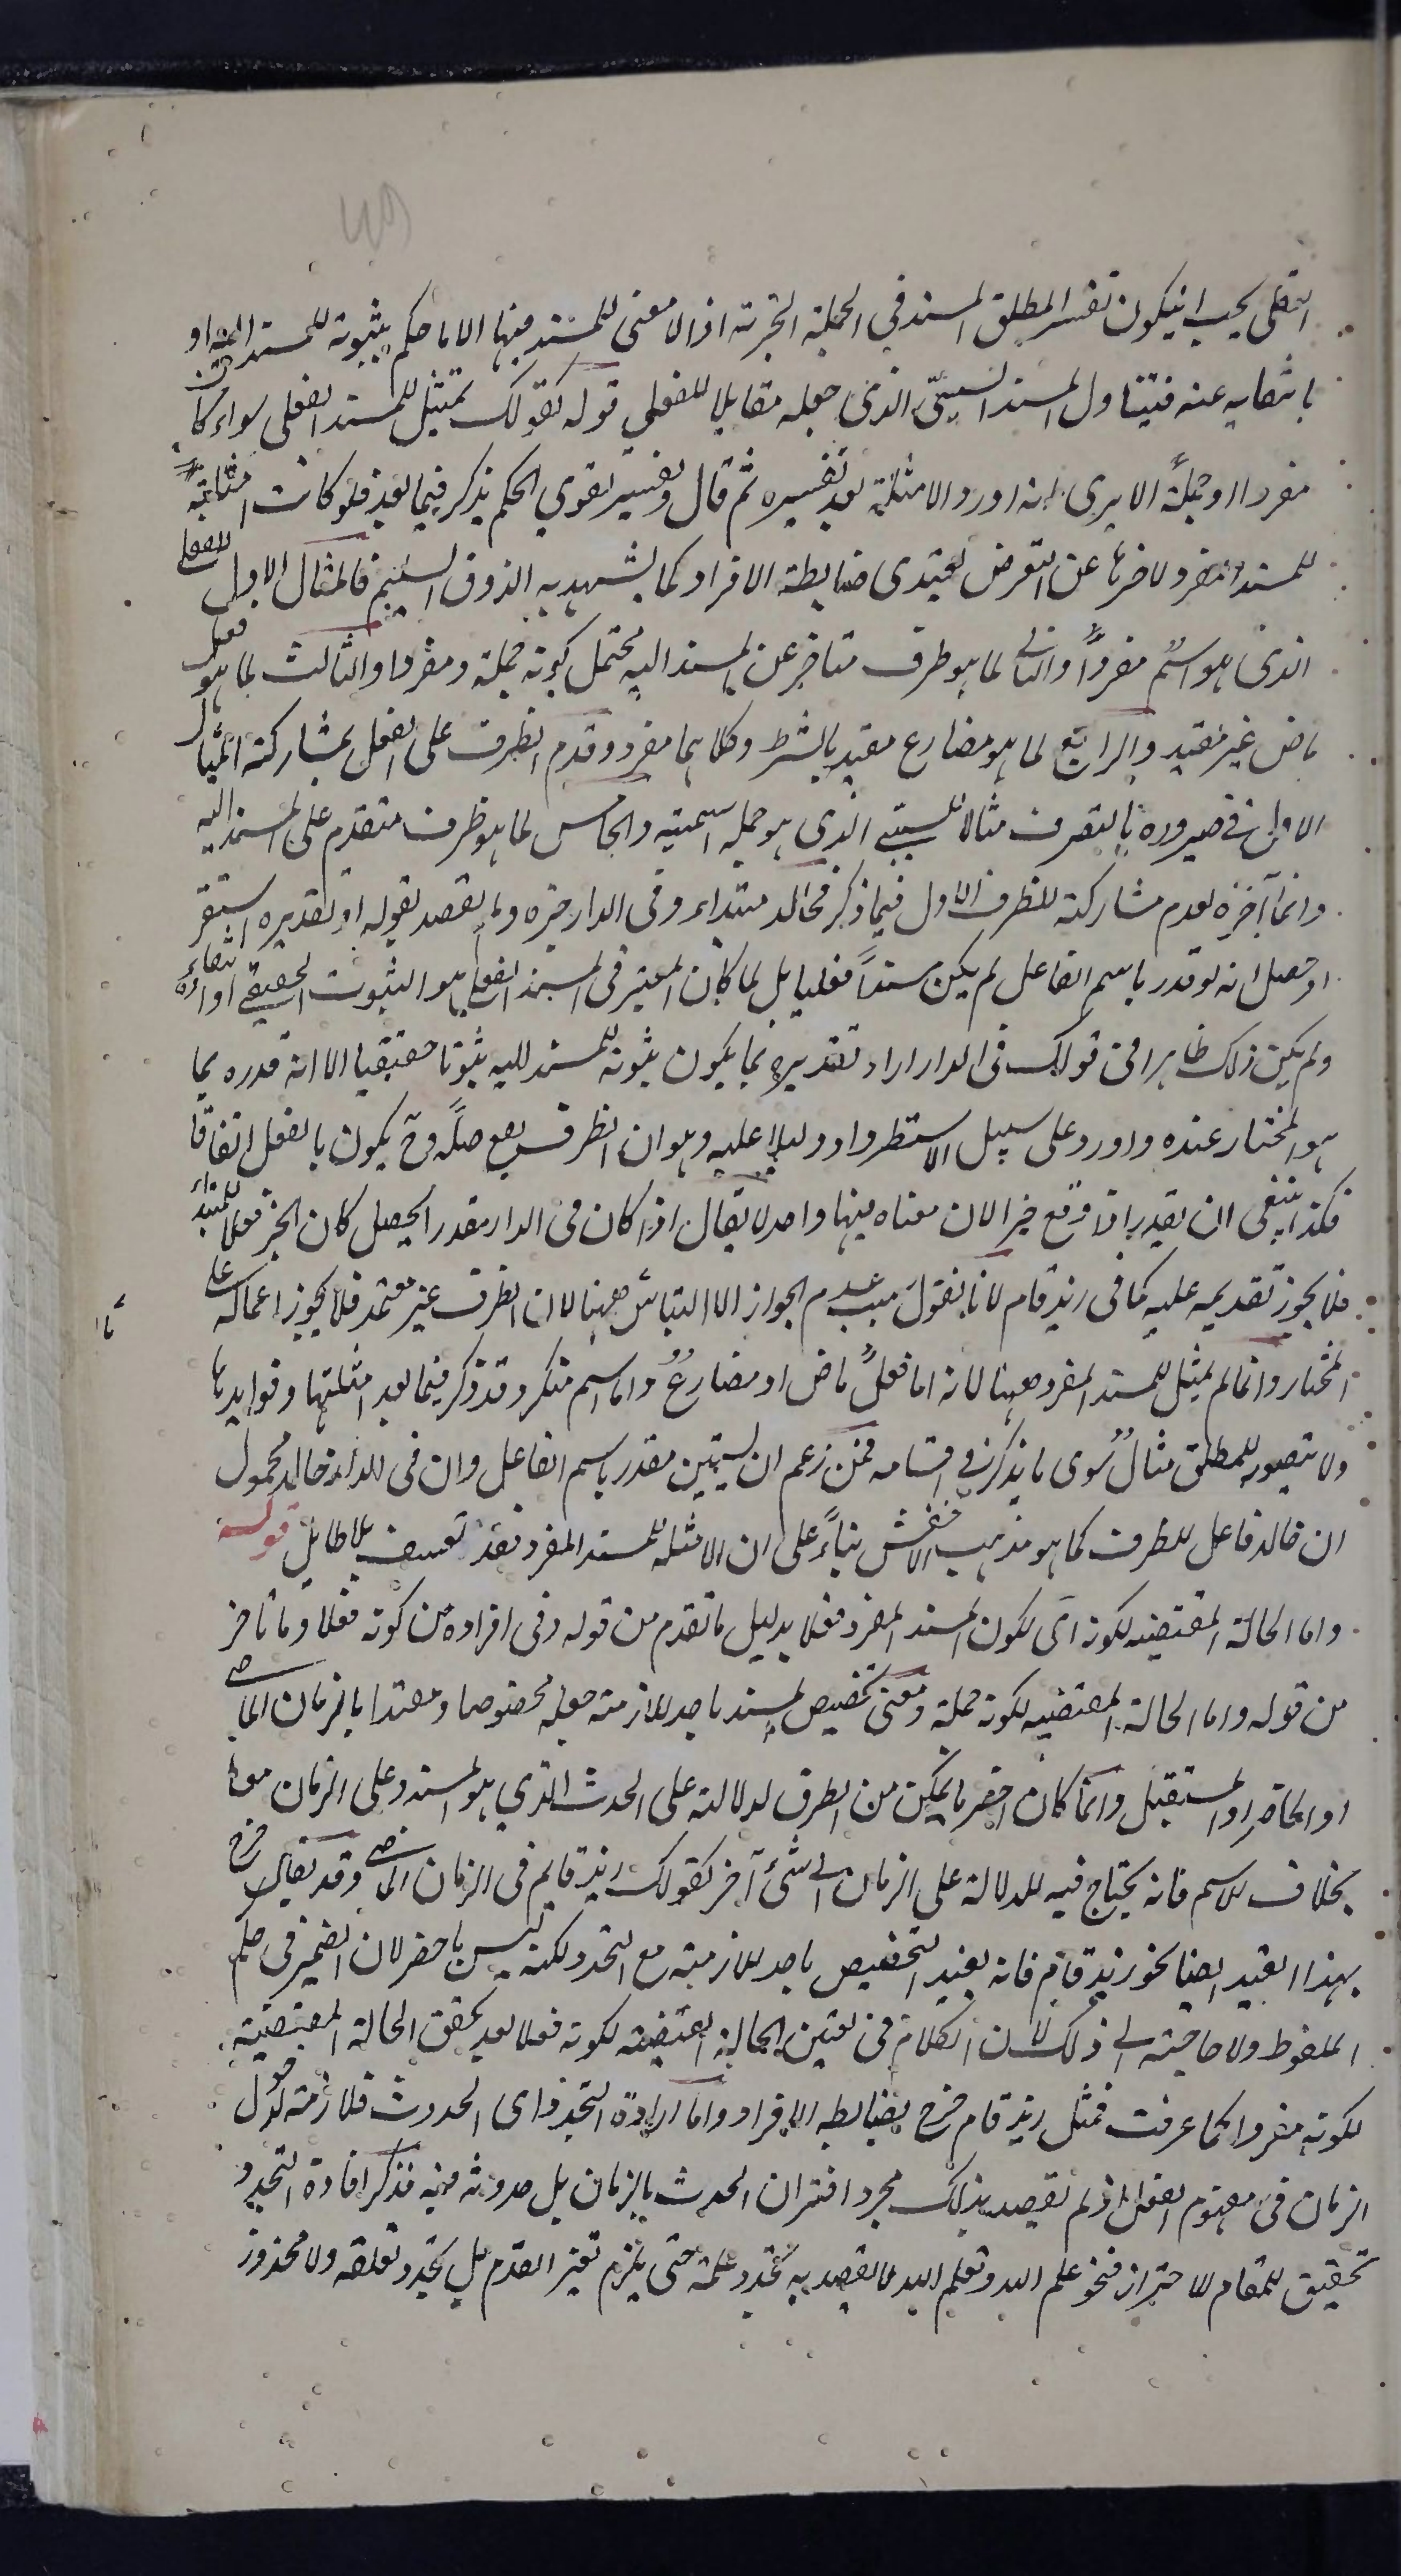 الفعلى يجب ان يكون تفسير المطلق المسند فى الجملة الخبرية اذ لا معنى للمسند فيها الا ما حكم بثبوته للمسند اليه او
بانتفايه عنه فيتناول المسند السببىّ الذى جعله مقابلا للفعلى قوله كقولك تمثيل للمسند الفعلى سواء كان
مفردا او جملةً الا يرى انه اورد الامثلة بعد تفسيره ثم قال وتفسير تقوى الحكم يذكر فيما بعد فلو كانت امثلة
للمسند المفرد لاخرها عن التعرض لقيدى ضابطة الافراد كما يشهد به الذوق السليم فالمثال الاول للفعلى
الذى هو اسمٌ مفرداً والثانى لما هو ظرف متاخر عن المسند اليه محتمل كونه جملة ومفردا والثالث لما هو فعل
ماض غير مقيد والرابع لما هو مضارع مقيد بالشرط وكلاهما مفرد وقدم الظرف على الفعل لمشاركته المثال
الاول فى صيرورته بالتصرف مثالا للسببى الذى هو جملة اسمية والخامس لما هو ظرف متقدم على المسند اليه
وانما آخره لعدم مشاركته للظرف الاول فيما ذكر فخالد مبتداء وفى الدار خبره ولم يقصد بقوله او تقديره استقر
او حصل انه لو قدر باسم الفاعل لم يكن مسنداً فعليا بل لما كان المعتبر فى المسند الفعلى هو الثبوت الحقيقى او انتفاءه
ولم يكن ذلك ظاهرا فى قولك فى الدار اراد تقديره بما يكون ثبوته للمسند اليه ثبوتا حقيقيا الا انه قدره بما
هو المختار عنده واورد على سبيل الاستطراد دليلا عليه وهو ان الظرف يقع صلةً وح يكون بالفعل اتفاقا
فكذا ينبغى ان يقدر اذا وقع خبرا لان معناه فيهما واحد لا يقال اذا كان فى الدار مقدرا بحصل كان الخبر فعلا للمبتداء
فلا يجوز تقديمه عليه كما فى زيد قام لانا نقول سبب عدم الجواز الالتباس ههنا لان الظرف غير معتمد فلا يجوز اعماله على
المختار وانما لم يمثل للمسند المفرد ههنا لانه اما فعلٌ ماض او مضارعٌ واما اسم منكر وقد ذكر فيما بعد امثلتها وفوايدها
ولا يتصور للمطلق مثالٌ سوى ما يذكر فى اقسامه فمن زعم ان يستبين مقدر باسم الفاعل وان فى الدار خالد محمول
ان خالد فاعل للظرف كما هو مذهب الاخفش بناءً على ان الامثلة للمسند المفرد فقد تعسف بلا طايل قوله
واما الحالة المقتضية لكونه اى لكون المسند المفرد فعلا بدليل ما تقدم من قوله وفى افراده من كونه فعلا وما تاخر
من قوله واما الحالة المقتضية لكونه جملة ومعنى تخصيص المسند باحد الازمنة جعله مخصوصا ومقيدا بالزمان الماضى
او الحاضر او المستقبل وانما كان اخصر ما يمكن من الطرق لدلالته على الحدث الذى هو المسند وعلى الزمان معا
بخلاف الاسم فانه يحتاج فيه للدلالة على الزمان الى شئ آخر كقولك زيد قايم فى الزمان الماضى وقد يقال خرج
بهذا القيد ايضا نحو زيد قام فانه يفيد التخصيص باحد الازمنة مع التجدد لكنه ليس باخصر لان الضمير فى حكم
الملفوظ ولا حاجة الى ذلك لان الكلام فى تعيين الحالة المقتضية لكونه فعلا بعد تحقق الحالة المقتضية
لكونه مفردا كما عرفت فمثل زيد قام خرج بضابطة الافراد واما ارادة التجدد اى الحدوث فلازمة لدخول
الزمان فى مفهوم الفعل اذ لم يقصد بذلك مجرد اقتران الحدث بالزمان بل حدوثه فيه فذكر افادة التجدد
تحقيق للمقام لا احتراز فنحو علم الله ويعلم الله لا يقصد به تجدد علمه حتى يلزم تغير القدم بل تجدد تعلقه ولا محذور